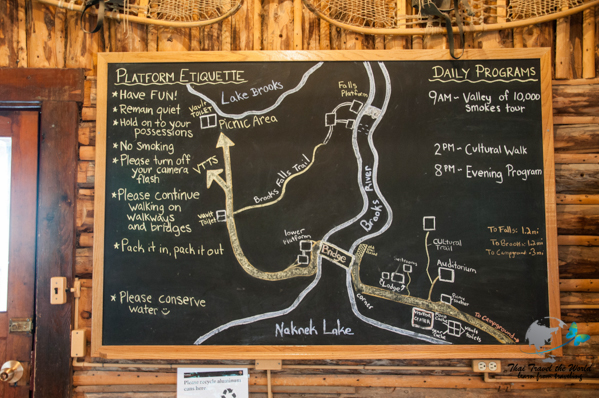 PLATFORM ETIQUETTE
* HAVE FUN!
* Remain quiet
* Hold on to your
possessions
* No smoking
* Please turn off
your camera
flash
* Please continue
walking on
walkways
and bridges
* Pack it in, pack it out
* Please conserve
water
Lake Brooks
Vault
Toilet
Picnic Area
VTTS
Brooks Falls Trail
Vault
Toilet
Falls
Platform
Brooks River
lower
Platform
Bridge
Corner
Naknek Lake
Lodge
Cultural
Trail
Auditorium
VISITOR
CENTER
Vault
Toilets
To Campground
DAILY PROGRAMS
9AM - Valley of 10,000
smokes tour
2 PM - Cultural Walk
8 PM - Evening Program
To Falls: 1.2 mi
To Campground
Thai Travel the World